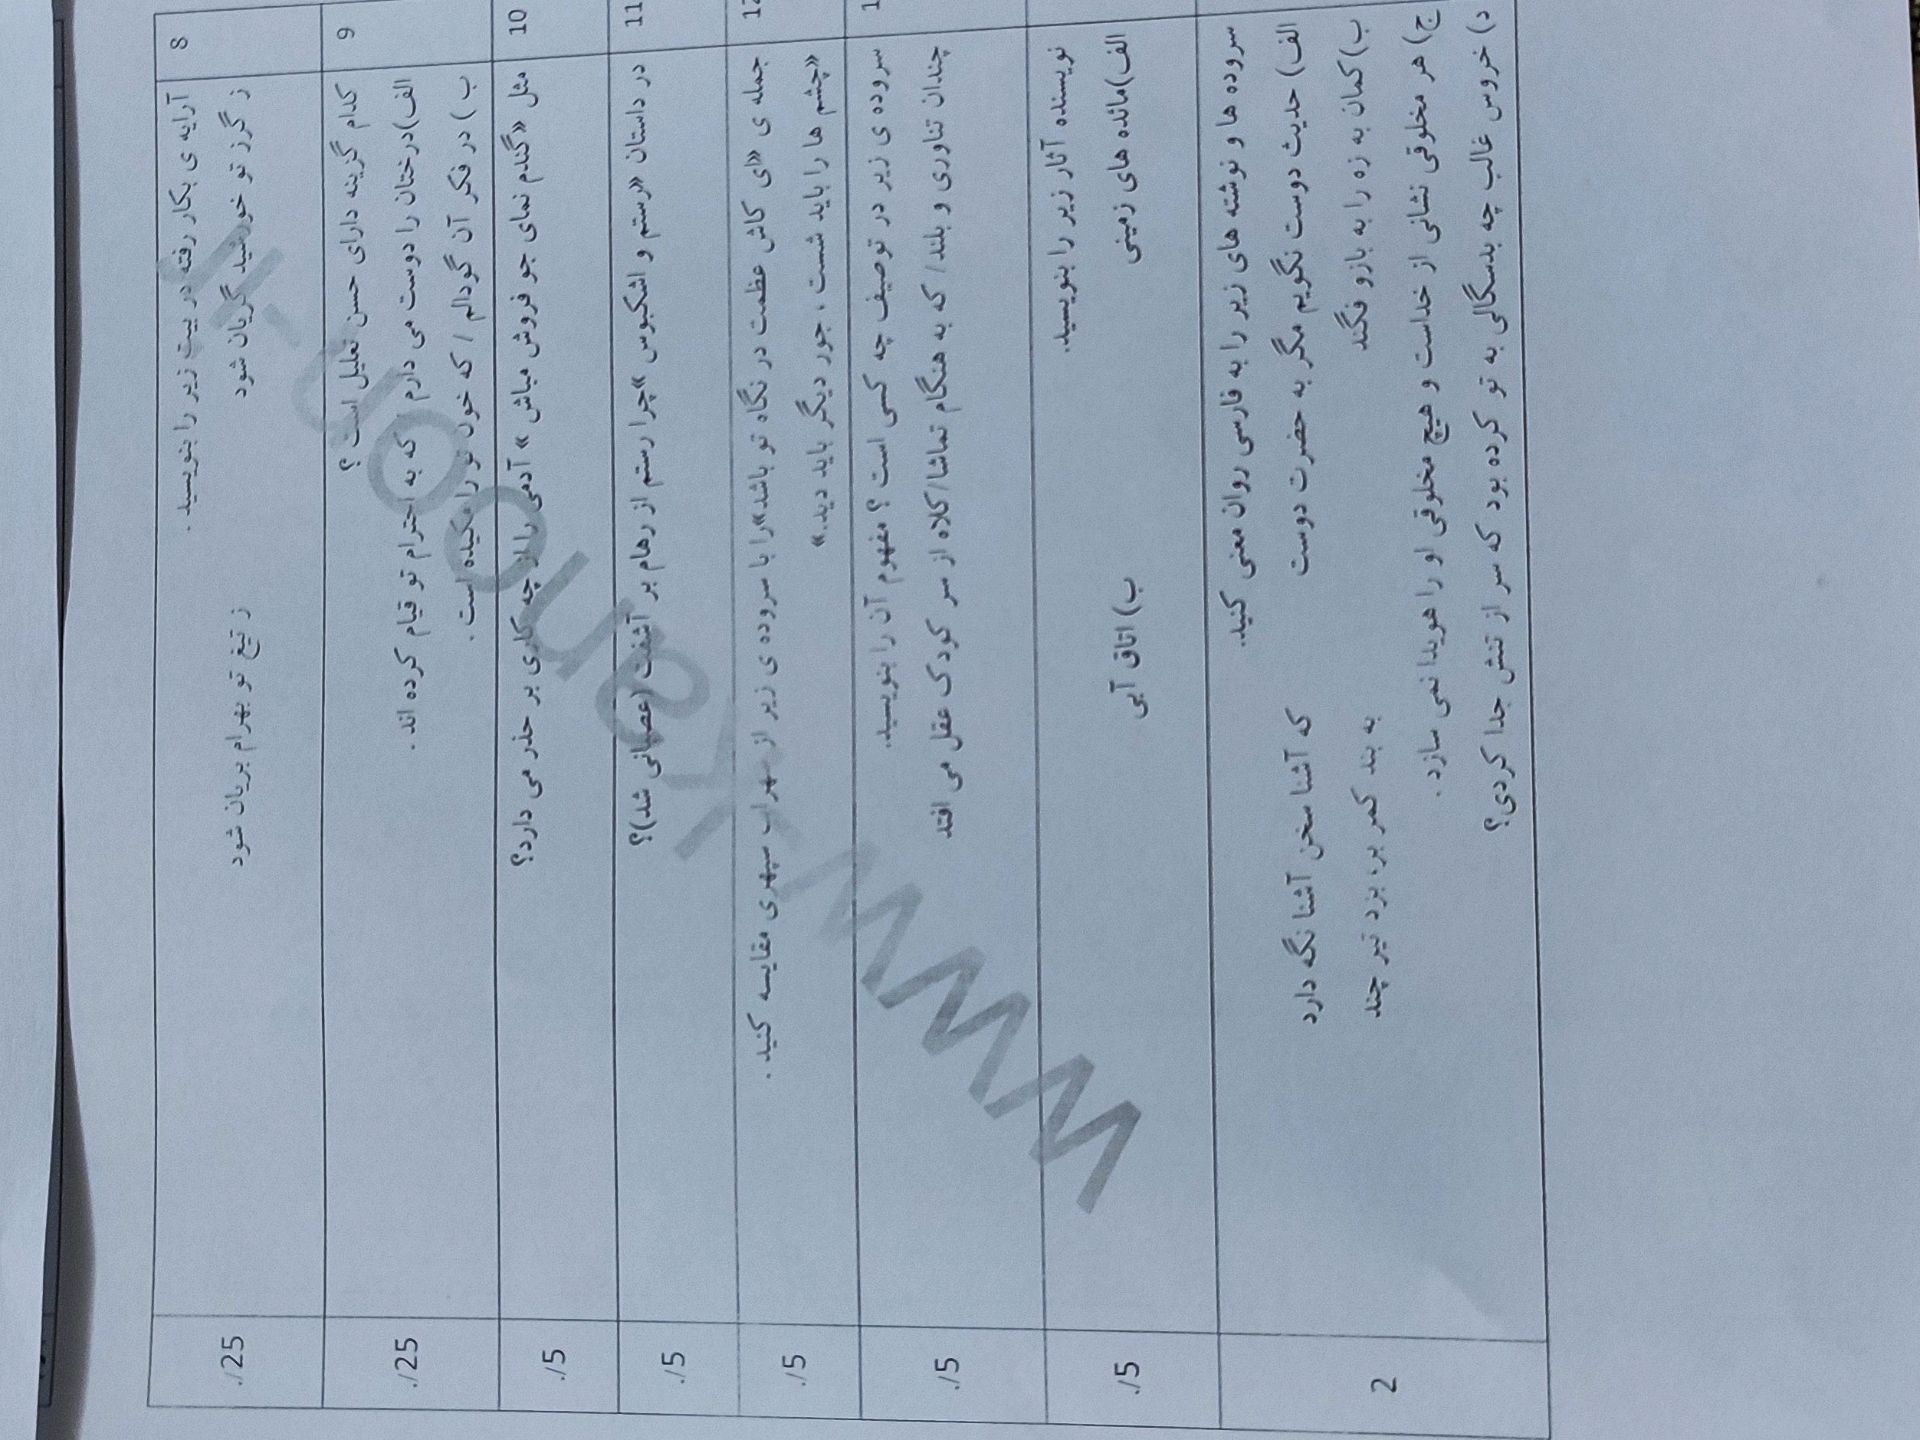 8
آرایه ی بکار رفته در بیت زیر را بنویسید .
./25
ز گرز تو خورشید گریان شود ز تیغ تو بهرام بریان شود
9
کدام گزینه دارای حسن تعلیل است ؟
./25
الف)درختان را دوست می دارم / که به احترام تو قیام کرده اند .
ب ) در فکر آن گودالم / که خون تو را مکیده است .
10
مثل «گندم نمای جو فروش مباش » آدمی را از چه کاری بر حذر می دارد؟
./5
11
در داستان «رستم و اشکبوس »چرا رستم از رهام بر آشفت (عصبانی شد)؟
./5
12
جمله ی «ای کاش عظمت در نگاه تو باشد»را با سروده ی زیر از سهراب سپهری مقایسه کنید .
./5
«چشم ها را باید شست ، جور دیگر باید دید.»
سروده ی زیر در توصیف چه کسی است ؟ مفهوم آن را بنویسید.
./5
چندان تناوری و بلند/ که به هنگام تماشا/کلاه از سر کودک عقل می افتد
نویسنده آثار زیر را بنویسید.
./5
الف)مائده های زمینی ب) اتاق آبی
سروده ها و نوشته های زیر را به فارسی روان معنی کنید.
2
الف) حدیث دوست نگویم مگر به حضرت دوست که آشنا سخن آشنا نگه دارد
ب)کمان به زه را به بازو فگند به بند کمر بر، بزد تیر چند
ج) هر مخلوقی نشانی از خداست و هیچ مخلوقی او را هویدا نمی سازد .
د) خروس غالب چه بدسگالی به تو کرده بود که سر از تنش جدا کردی؟